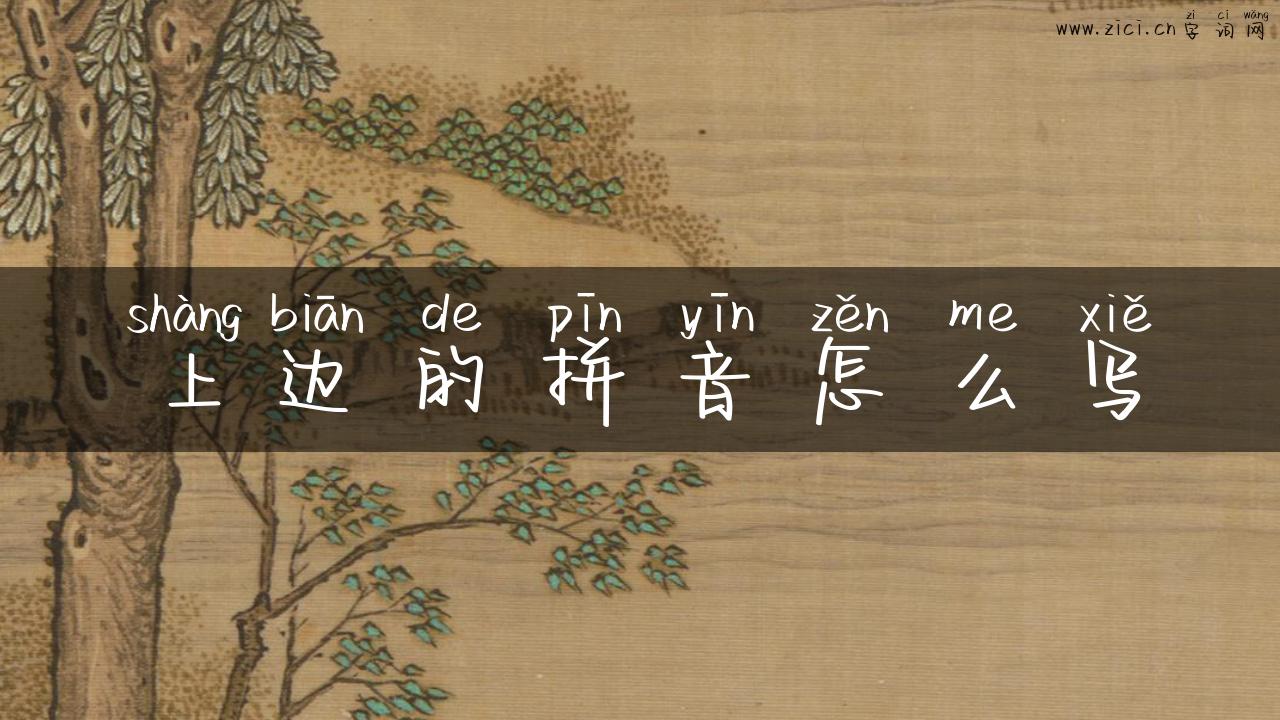 zì cí wǎng
www.zici.cn 字词网
shàng biān de pīn yīn zěn me xiě
上边的拼音怎么写